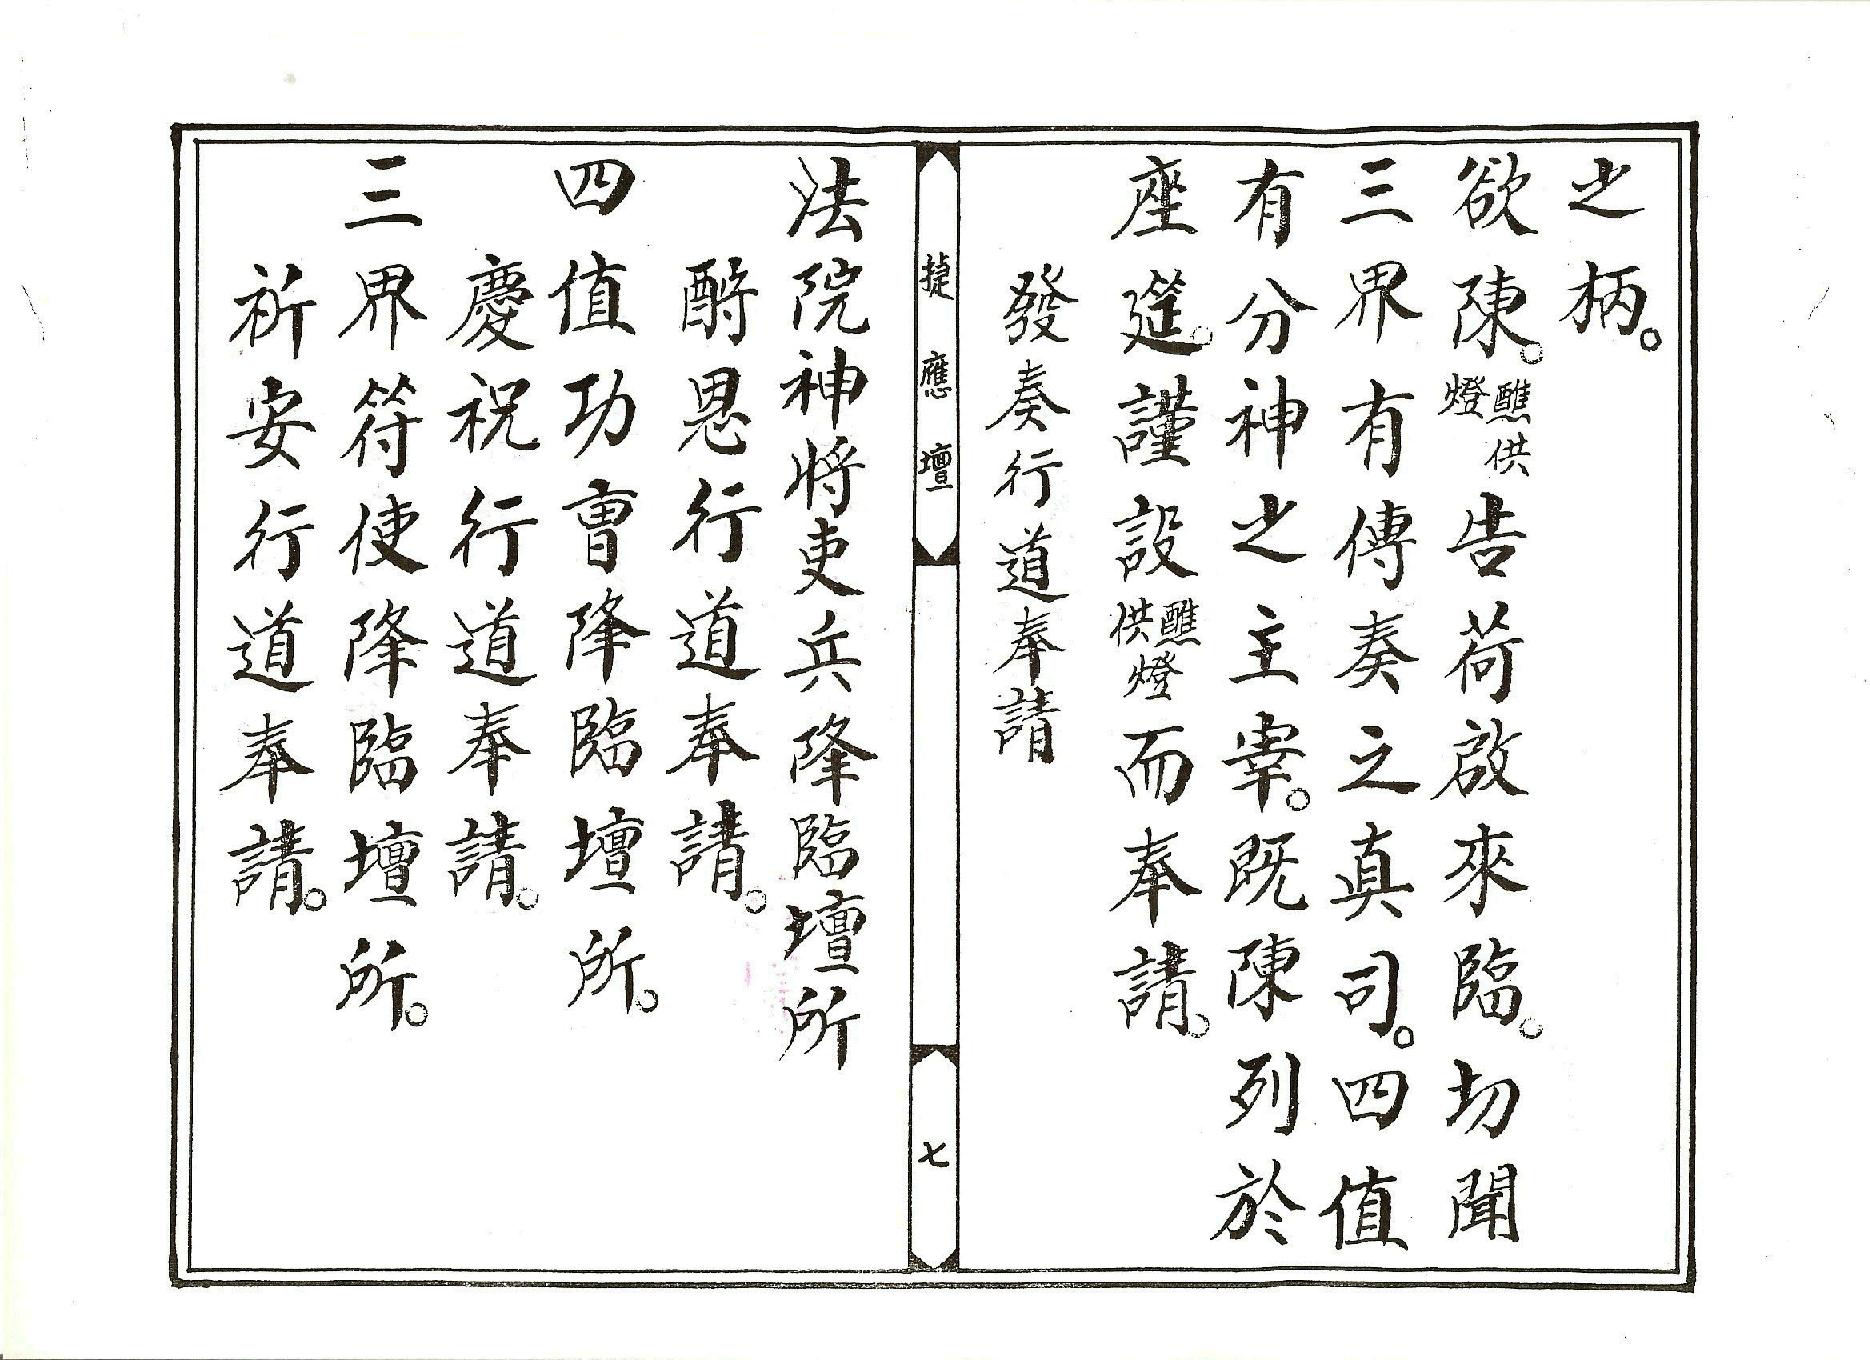 之柄。
欲陳。醮供燈告荷啟來臨。切聞
三界有傳奏之真司。四值
有分神之主宰。既陳列於
座筵。謹設醮供燈而奉請。
發奏行道奉請
捷應壇
七
法院神将吏兵降臨壇所
酧恩行道奉請。
四值功曹降臨壇所。
慶祝行道奉請。
三界符使降臨壇所。
祈安行道奉請。